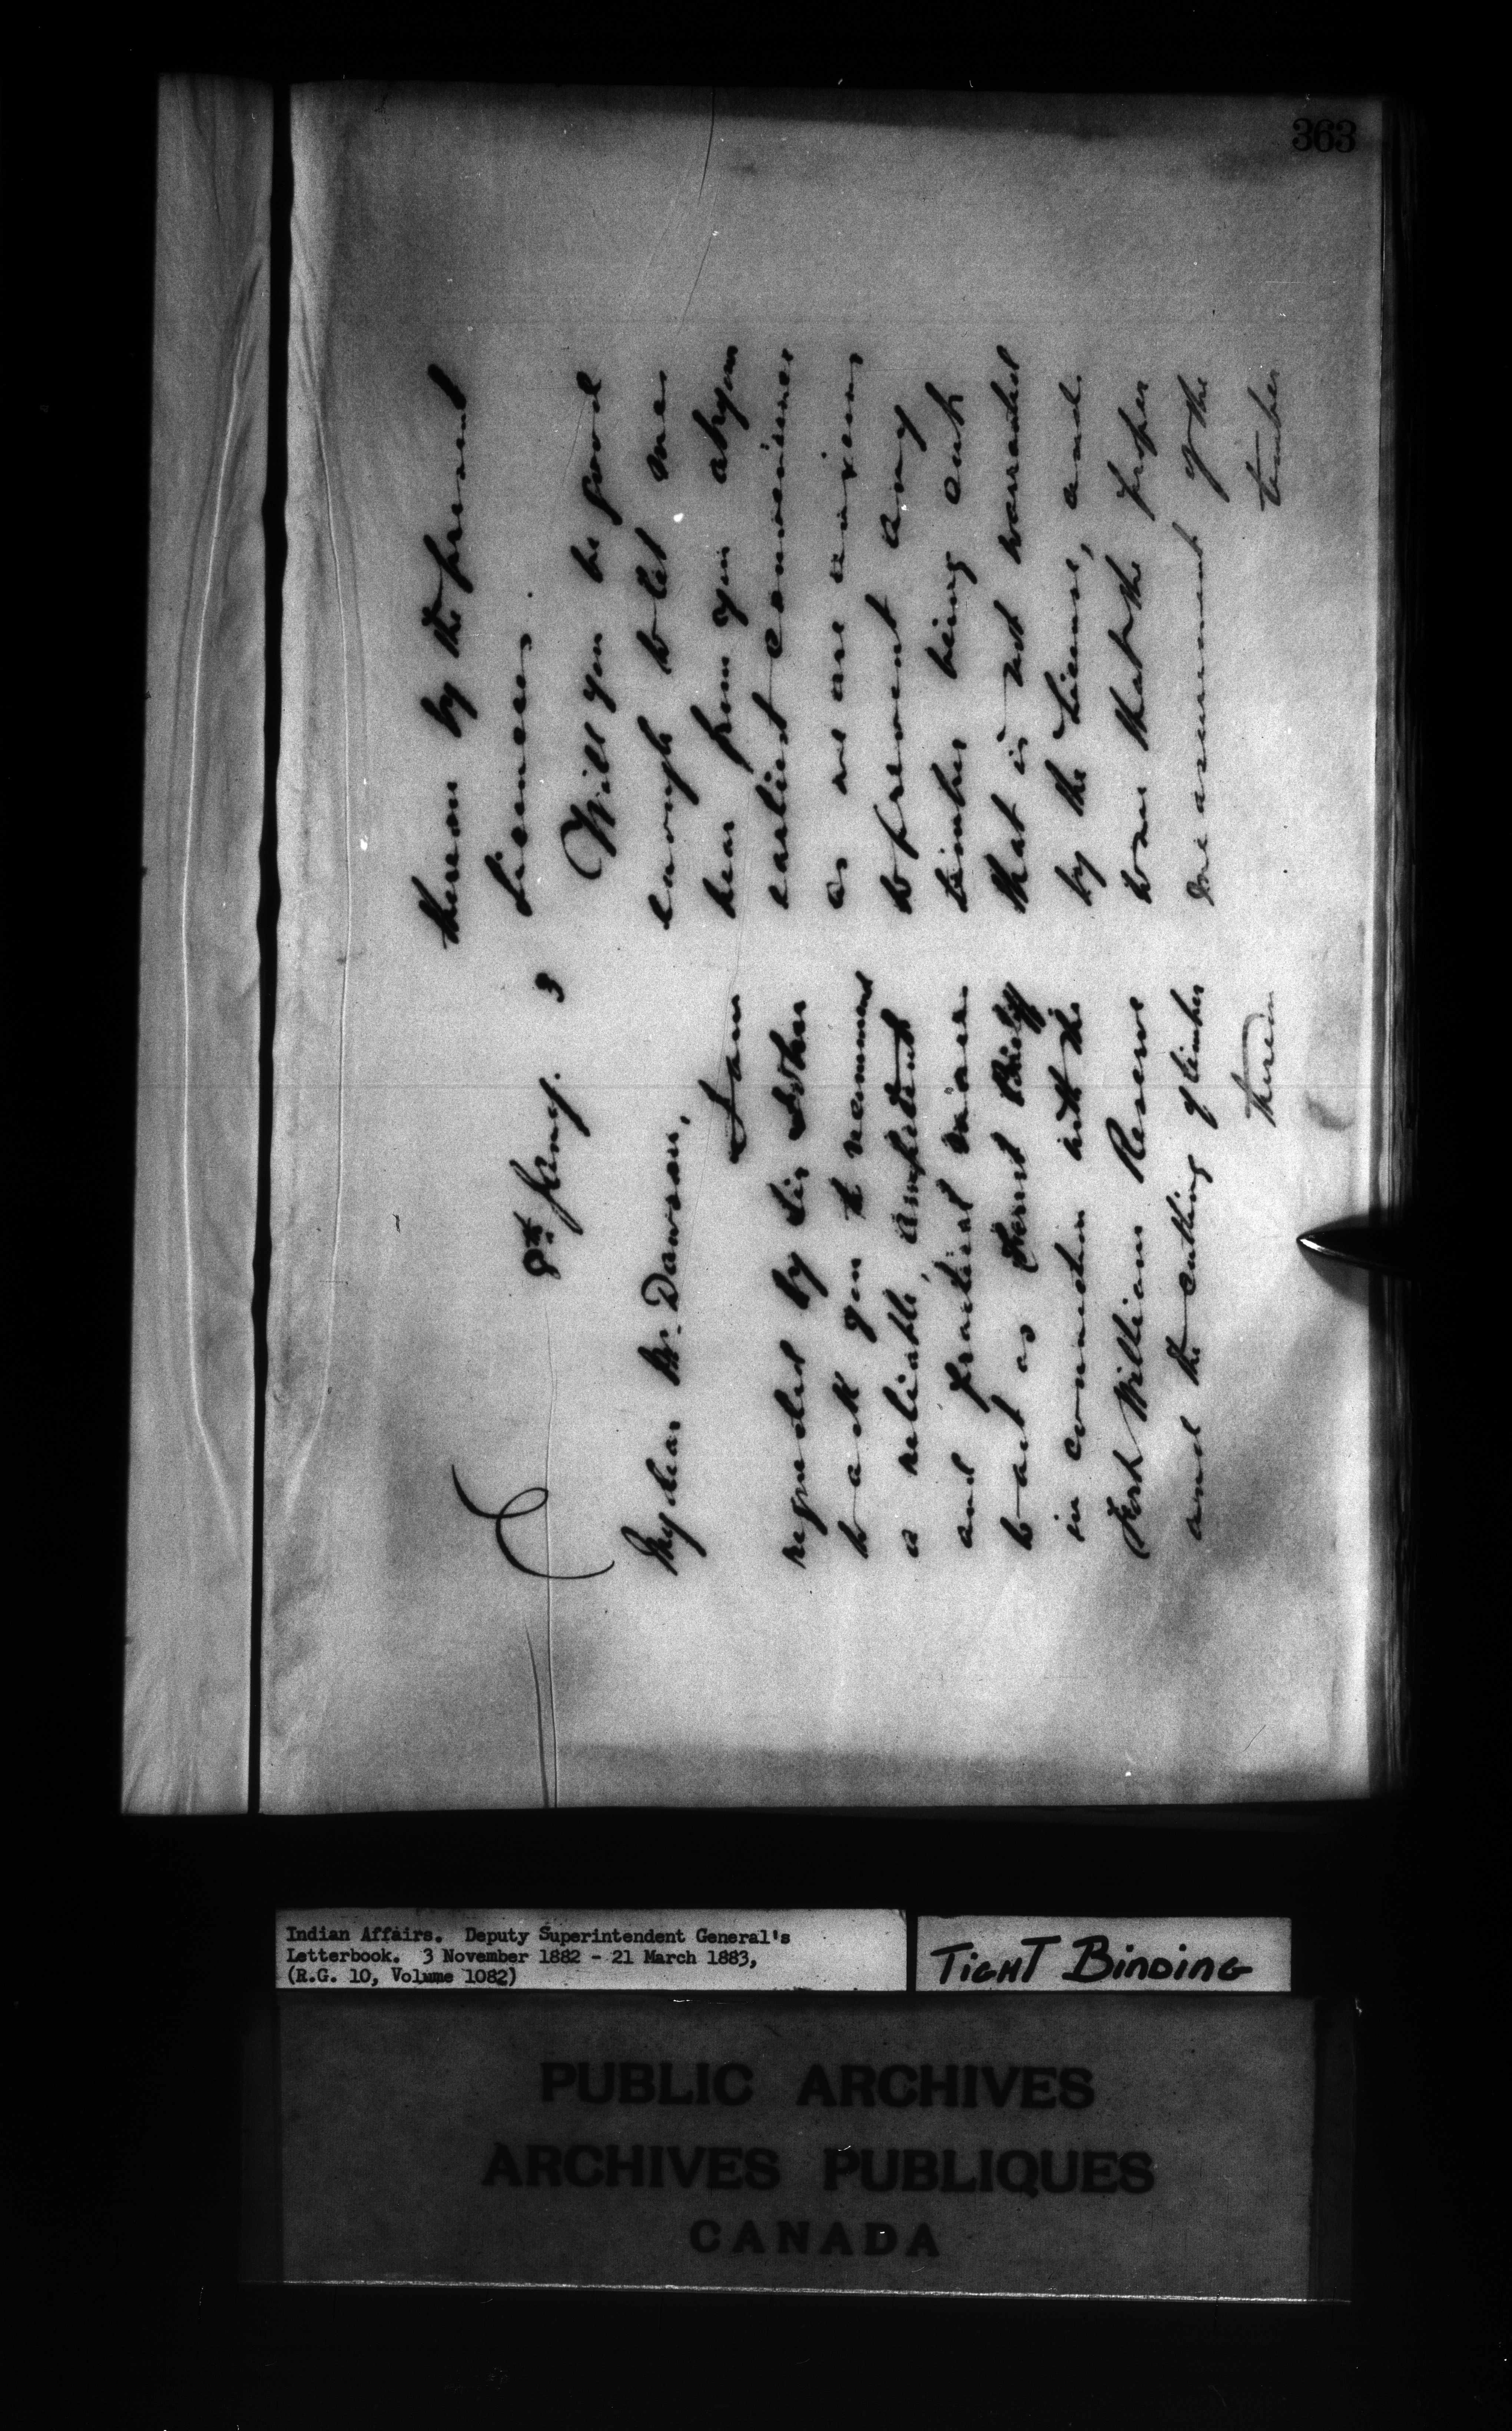 363
8th Jany. 3
My dear Mr. Dawson,
I am
requested by Sir John
to ask you to recommend
a reliable, competent
and practical man
to act as Forest Bailiff
in connection with the
Fort William Reserve
and the cutting of timber
therein
thereon by the present
Licencees.
Will you be good
enough to let me
hear from you at your
earliest convenience
as we are anxious
to prevent any
timber being cut
that is not warranted
by the License, and
to see that the proper
measurement of the
timber
Indian Affairs. Deputy Superintendent General's
Letterbook. 3 November 1882 - 21 March 1883,
(R.G. 10, Volume 1082)
TIGHT BINDING
PUBLIC ARCHIVES
ARCHIVES PUBLIQUES
CANADA